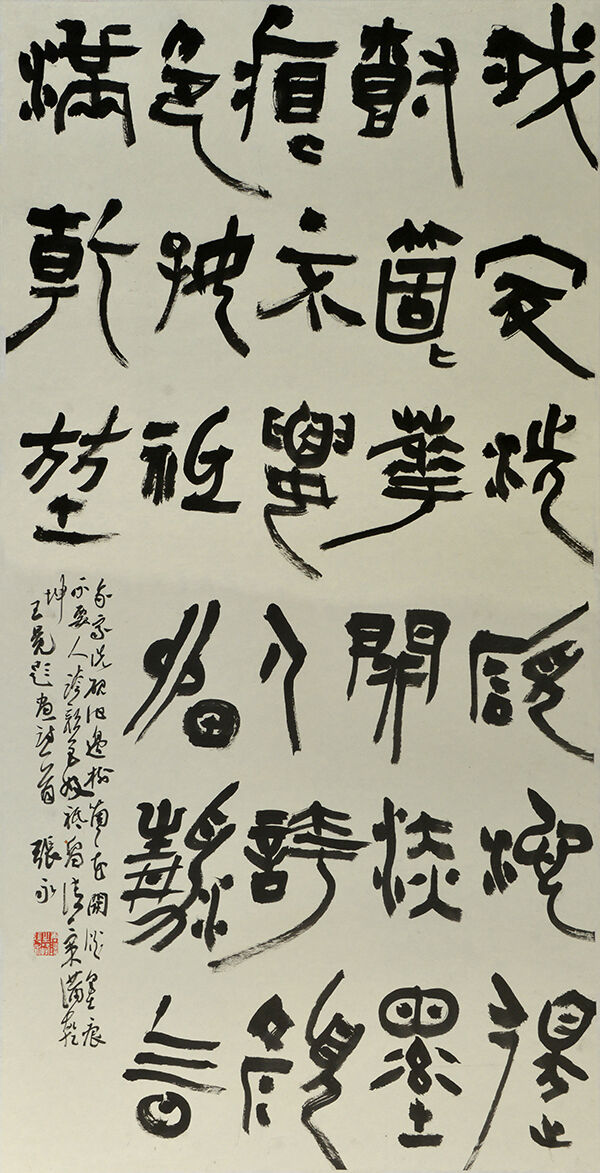 我家洗硯池邊
樹箇〻華開淡墨
痕不要人誇顏
色好祗留清氣
滿乾坤
我家洗硯池邊樹箇〻花開淡墨痕
不要人誇顏色好祗留清氣滿乾
坤 王冕題畫詩一首 張永